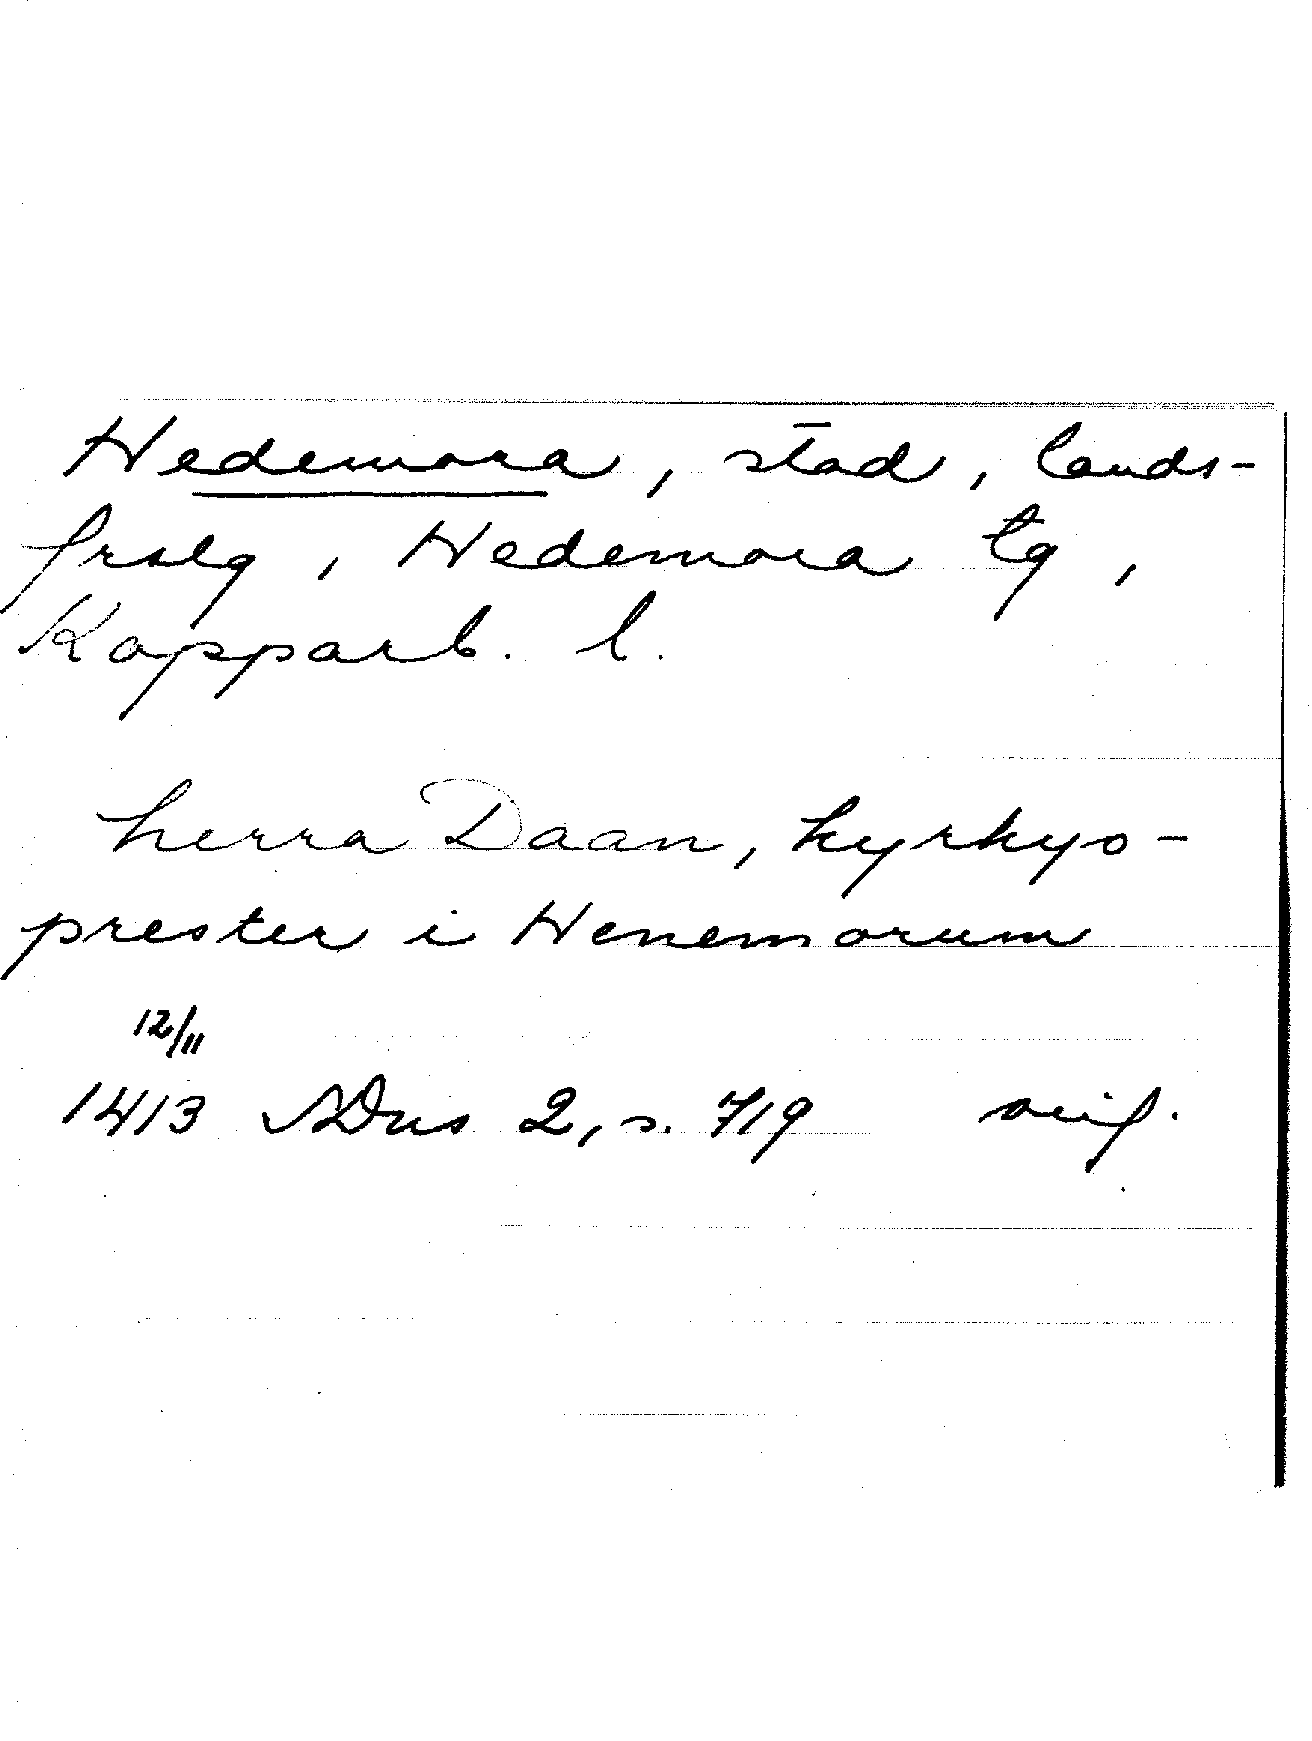 Hedemora, stad, lands-
frslg, Hedemora tg,
Kopparb. l.
herra Daan, kyrkyo-
prester i Henemorum
12/11
1413 SDns 2, s. 719 avig.